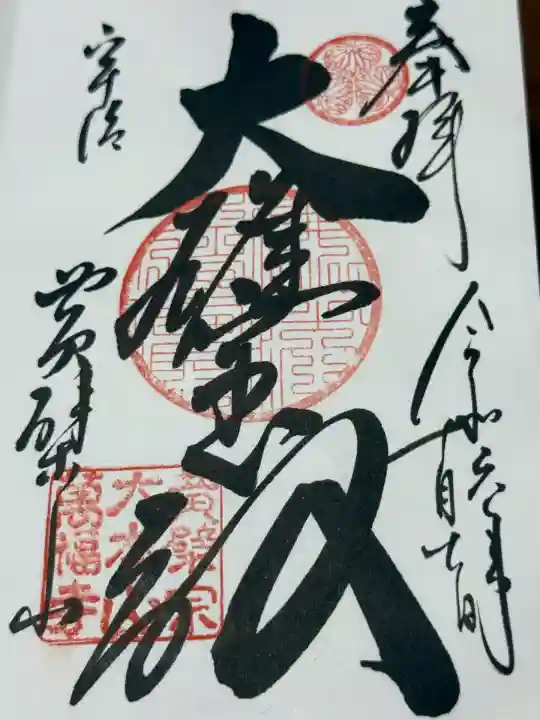 奉拝
令和六年
十月十七日
大雄宝殿
宇治
黄檗山
黄檗宗
大本山
萬福寺